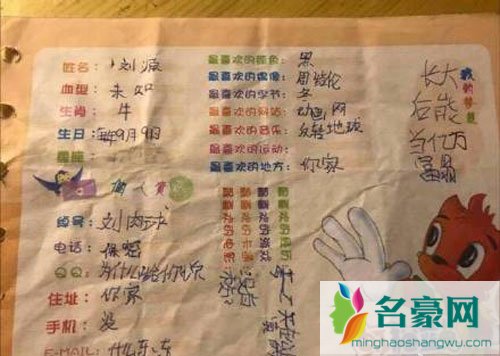 姓名：刘源
血型：未知
生肖：牛
生日：每年9月9日
星座：
个人资
绰号：刘肉球
电话：保密
QQ：为什么给你
住址：你家
手机：没
E-MAIL：什么东东
最喜欢的颜色：黑
最喜欢的偶像：周杰伦
最喜欢的季节：冬
最喜欢的网站：动画网
最喜欢的音乐：反转地球
最喜欢的运动：
最喜欢的地方：你家
最喜欢的卡通
最喜欢的游戏
最喜欢的电影
没有
我的梦想
长大
后能
当亿万
富
名豪网
minghaoshangwu.com